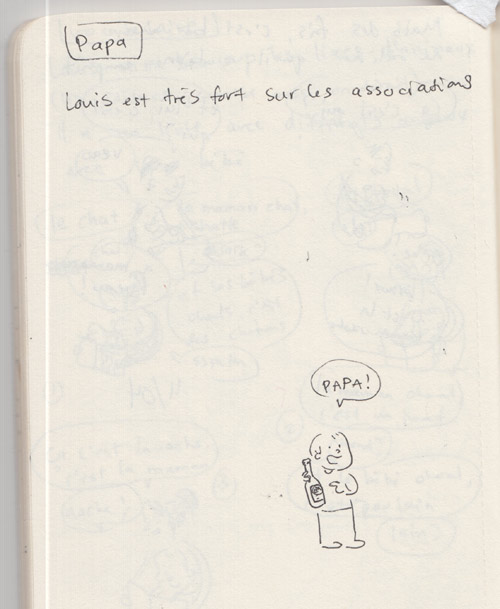 Papa
Louis est très fort sur les associations
PAPA!